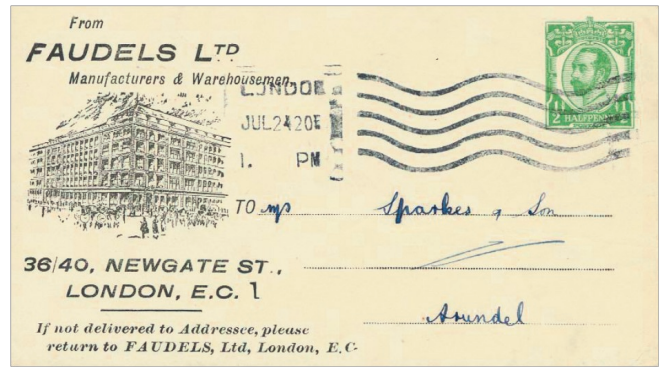 From
FAUDELS LTD
Manufacturers & Warehousemen
LONDON
JUL 24 20
1. PM
1/2 HALFPENNY 1/2
TO Sparkes & Son
36/40, NEWGATE ST.,
LONDON, E.C. 1
Arundel
If not delivered to Addressee, please
return to FAUDELS, Ltd, London, E.C.